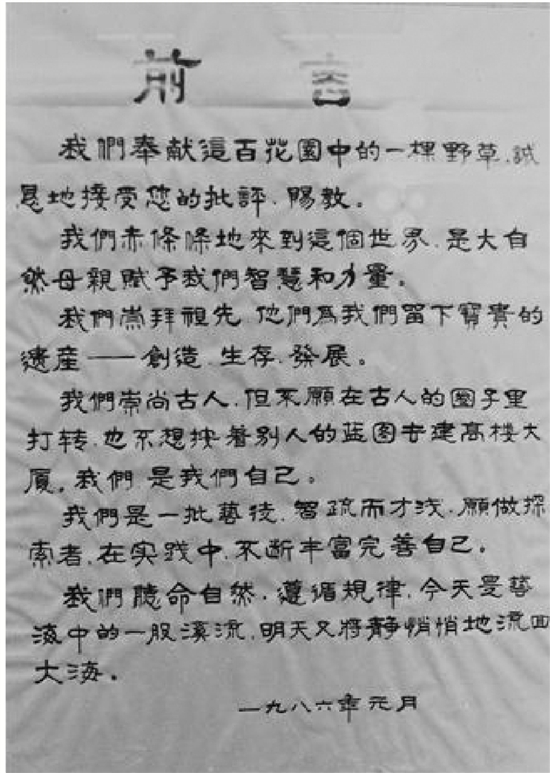 前言
我們奉献這百花園中的一棵野草,誠
恳地接受您的批評、賜教。
我們赤條條地來到這個世界,是大自
然母親賦予我們智慧和力量。
我們崇拜祖先,他們為我們留下寶貴的
遺産——創造、生存、發展。
我們崇尚古人,但不願在古人的圈子里
打转,也不想按着别人的蓝图去建高楼大
厦,我們是我們自己。
我們是一批藝徒,智疏而才浅,願做探
索者,在实践中,不断丰富完善自己。
我們聽命自然,遵循規律,今天是藝
海中的一股溪流,明天又將靜悄悄地流回
大海。
一九八六年元月